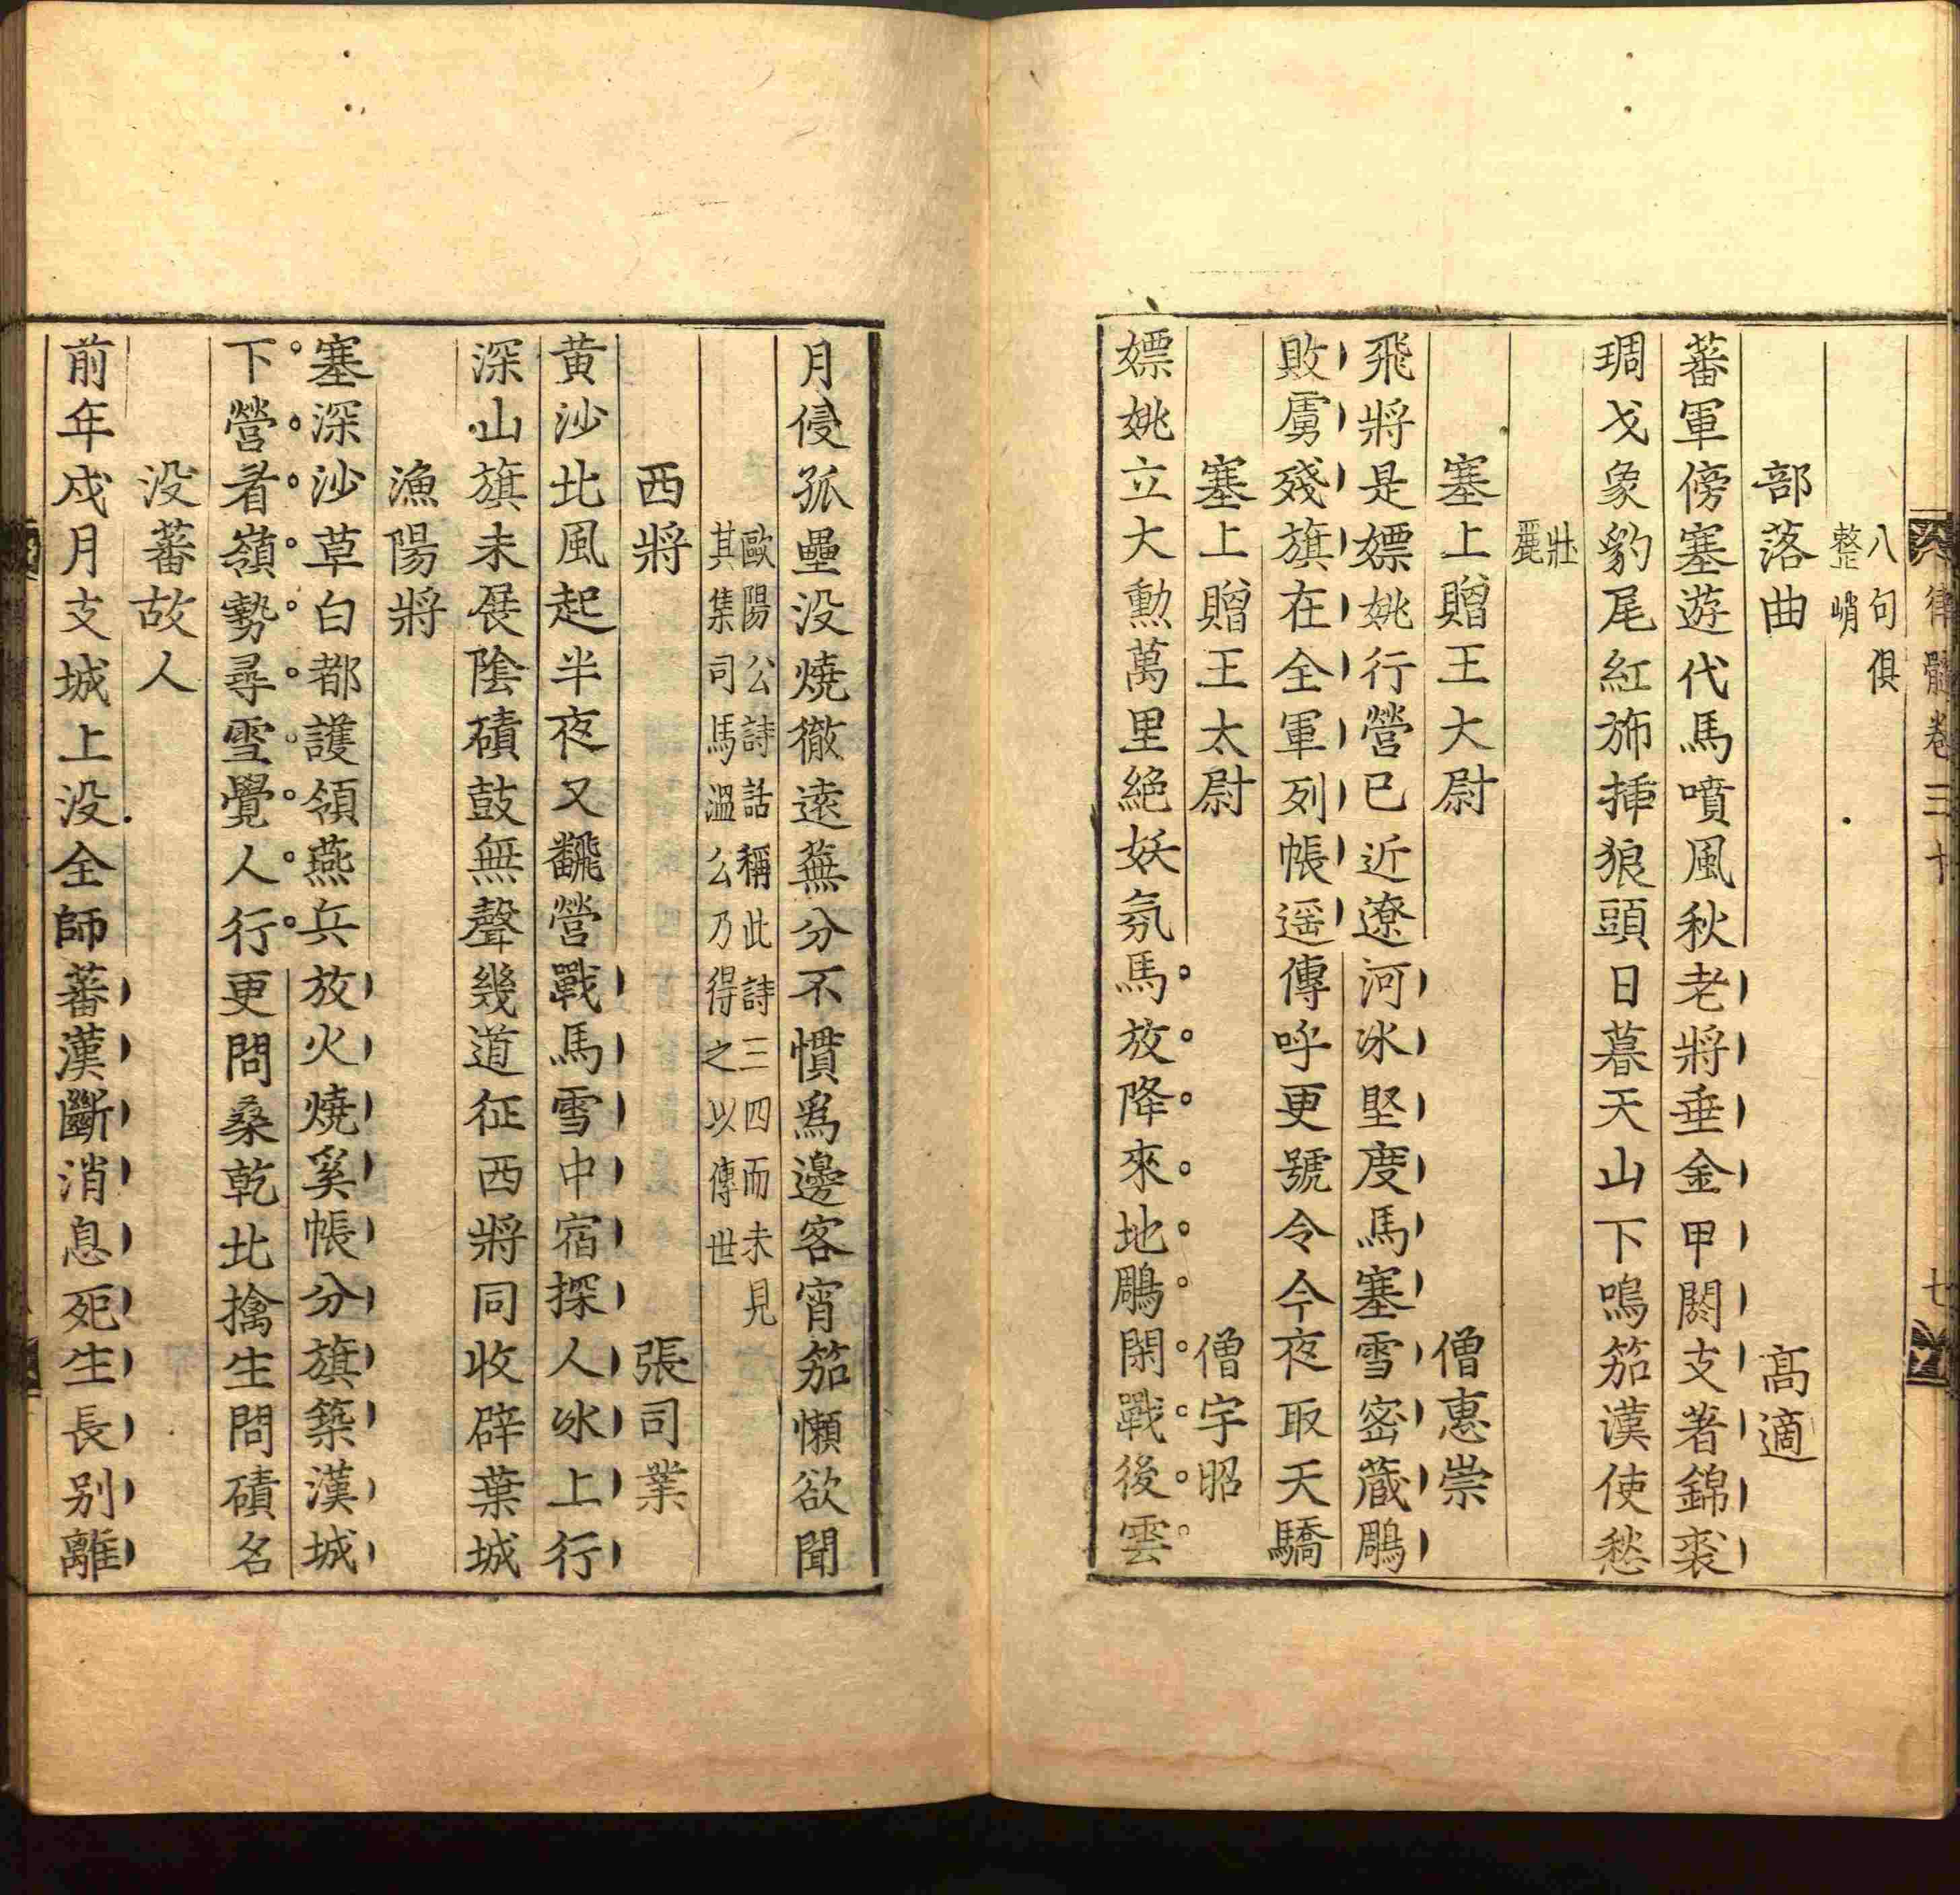 律髓卷三十 七
八句俱
整峭
部落曲 高適
蕃軍傍塞遊代馬噴風秋老將垂金甲閼支著錦裘
琱戈蒙豹尾紅斾揷狼頭日暮天山下鳴笳漢使愁
壯
麗
塞上贈王大尉 僧惠崇
飛將是嫖姚行營已近遼河冰堅度馬塞雪密藏鵰
敗虜殘旗在全軍列帳遥傳呼更號令今夜取天驕
塞上贈王太尉 僧宇昭
嫖姚立大勳萬里絕妖氛馬放降來地鵰閑戰後雲
月侵孤壘没燒徹遠蕪分不慣爲邊客宵笳懶欲聞
歐陽公詩話稱此詩三四而未見
其集司馬溫公乃得之以傳世
西將 張司業
黄沙北風起半夜又飜營戰馬雪中宿探人冰上行
深山旗未展陰磧鼓無聲幾道征西將同收辟葉城
漁陽將
塞深沙草白都護領燕兵放火燒奚帳分旗築漢城
下營看嶺勢尋雪覺人行更問桑乾北擒生問磧名
没蕃故人
前年戍月支城上没全師蕃漢斷消息死生長别離